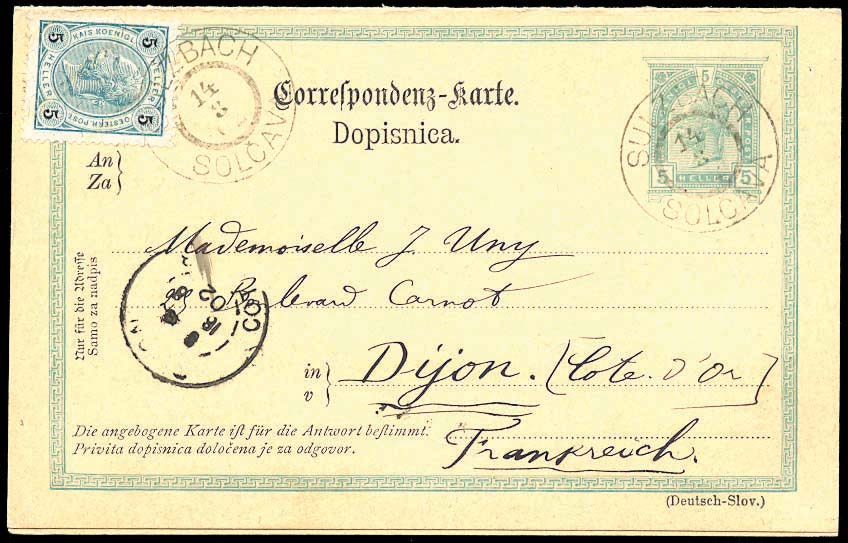 KAIS. KOENIGL.
5 5
HELLER HELLER
5 5
OESTERR. POST
BACH
14
8
SOLČAVA
Correspondenz-Karte.
Dopisnica.
5
5 HELLER 5
SULZBACH
14
8
SOLČAVA
An
Za
Mademoiselle J Uny
Boulevard Carnot
Nur für die Adresse
Samo za nadpis
02
CO
in
v
Dijon. [Cote d'Or]
Frankreich.
Die angebogene Karte ist für die Antwort bestimmt.
Privita dopisnica določena je za odgovor.
(Deutsch-Slov.)